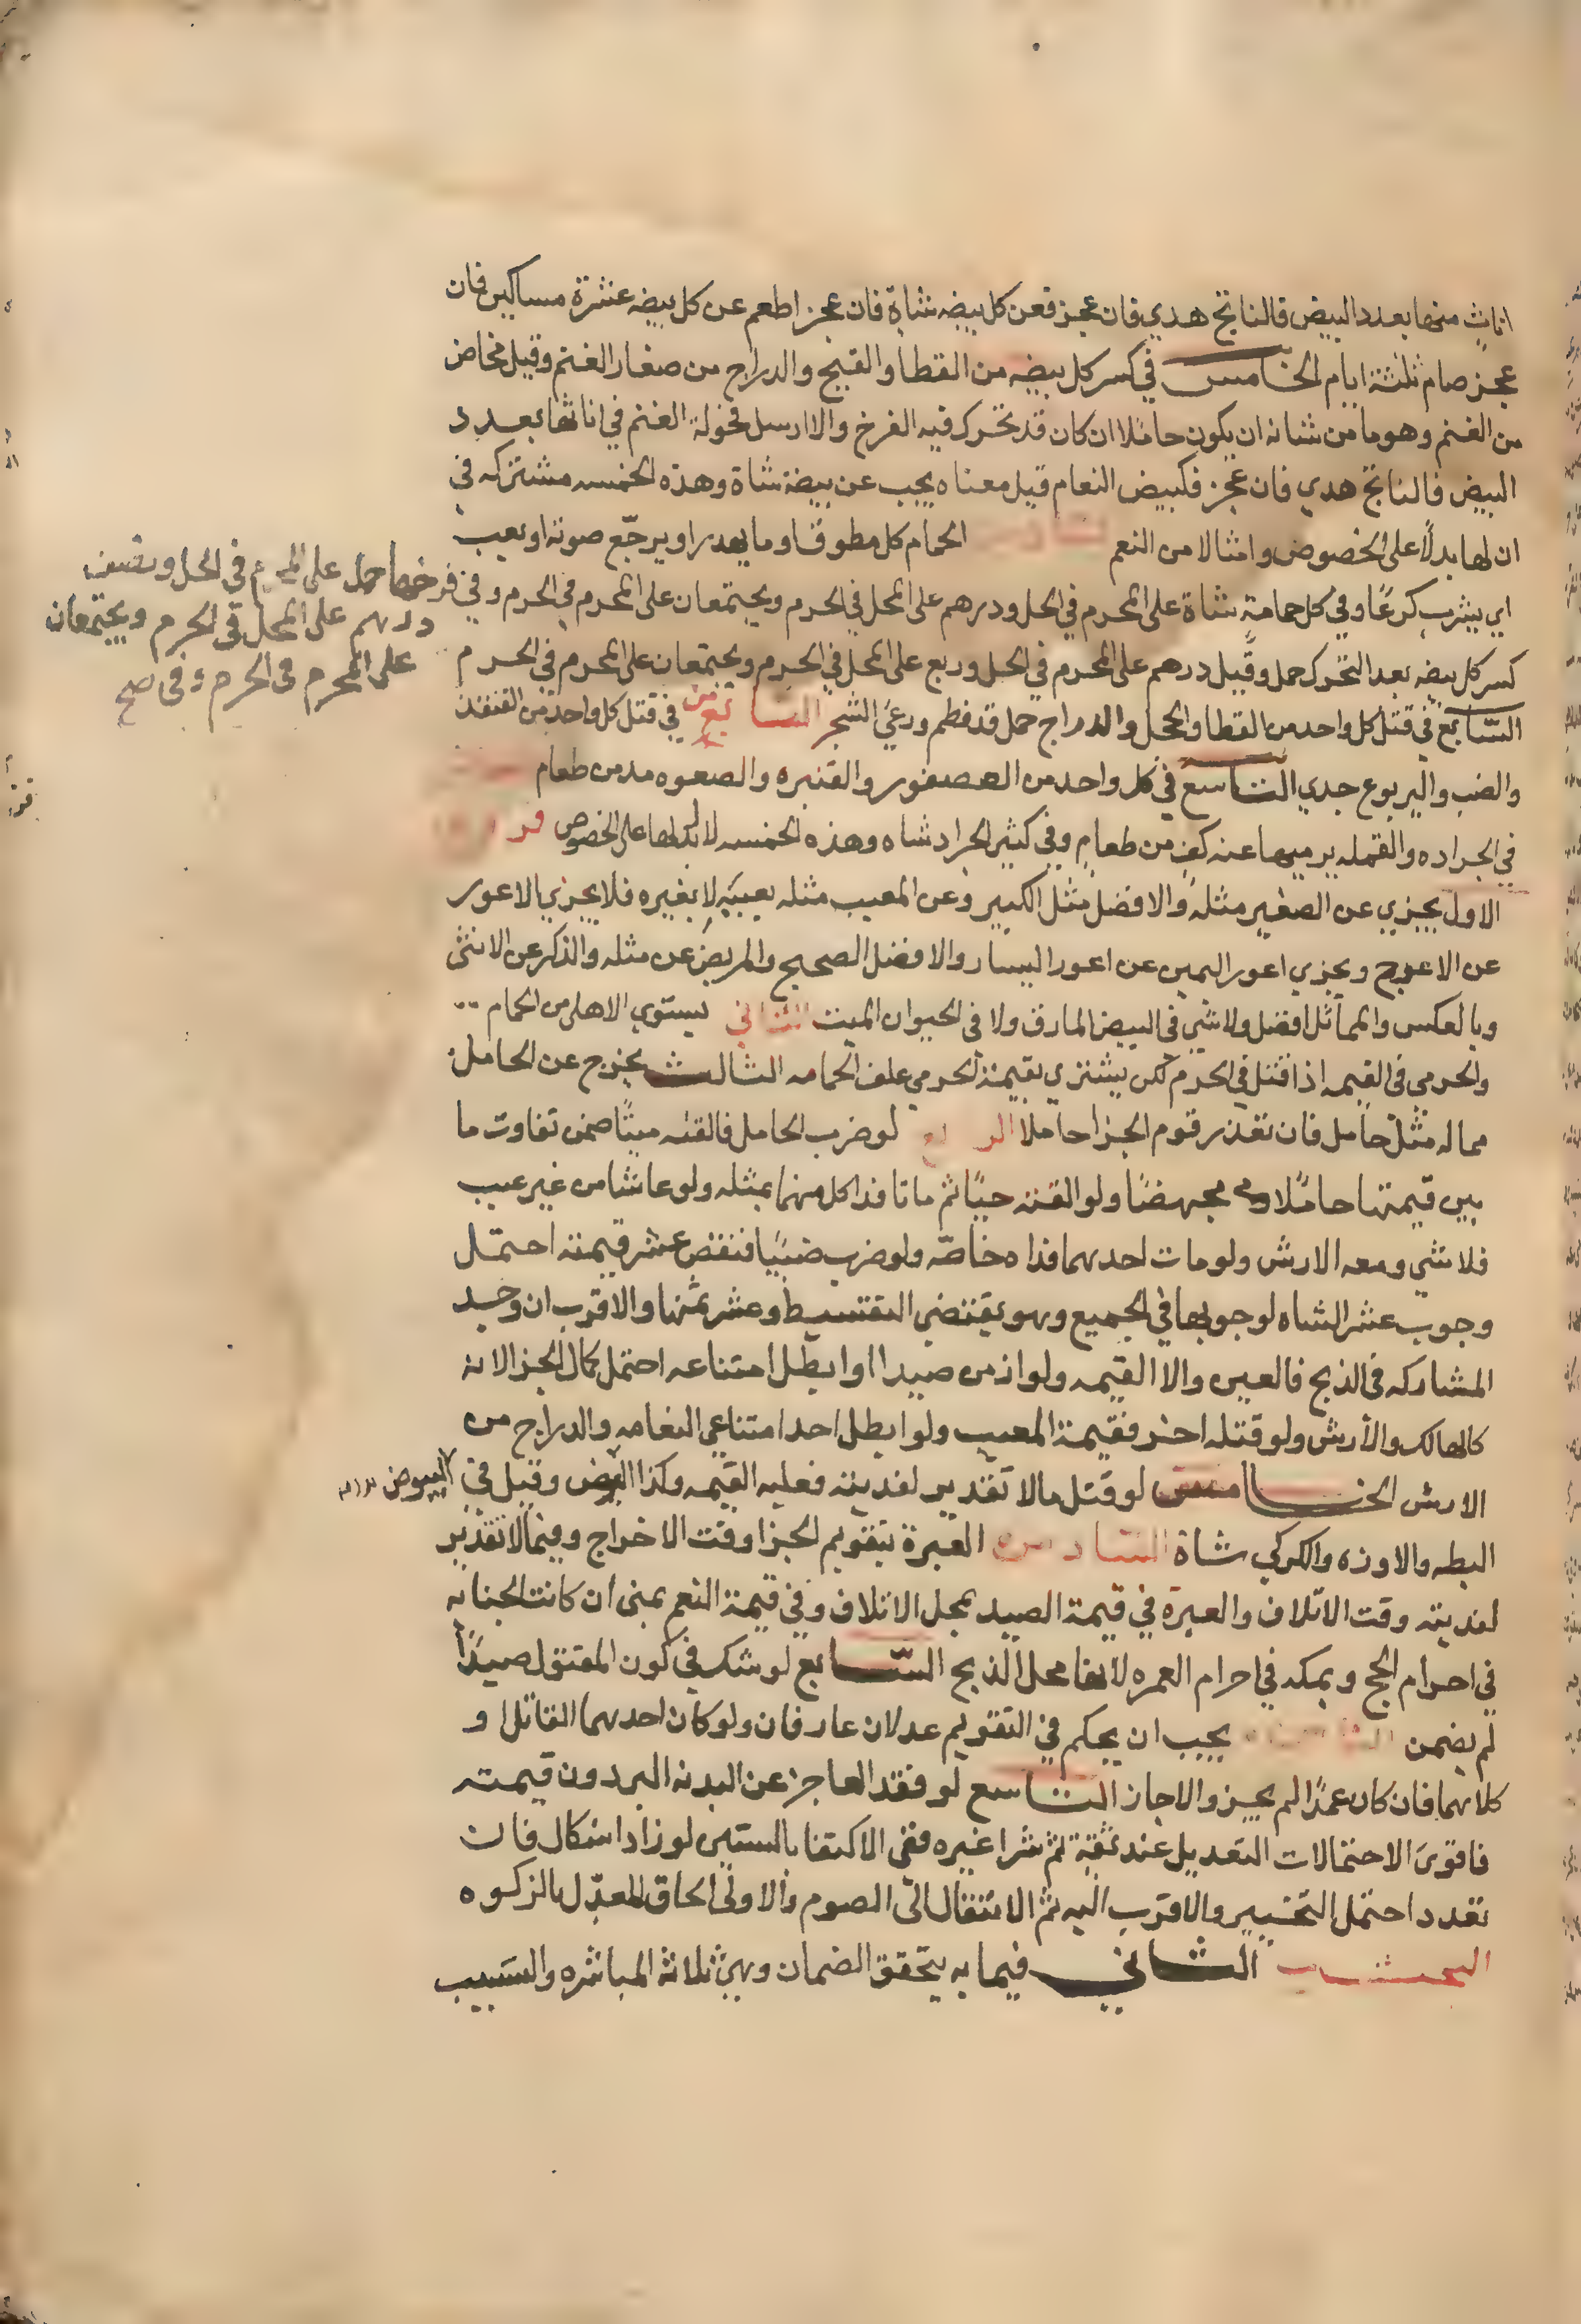 اناث منها بعدد البيض فالناتج هدي فان عجز فعن كل بيضه شاة فان عجز اطعم عن كل بيضه عشرة مساكين فان
عجز صام ثلثة ايام الخامس في كسر كل بيضه من القطا والقبج والدراج من صغار الغنم وقيل مخاض
من الغنم وهو ما من شانه ان يكون حاملا ان كان قد تحرك فيه الفرخ والا ارسل فحولة الغنم في اناثها بعدد
البيض فالناتج هدي فان عجز فكبيض النعام قيل معناه يجب عن بيضة شاة وهذه الخمسه مشتركه في
ان لها بدلا على الخصوص وامثالا من النعم السادس الحمام كل مطوق او ما يهدر او يرجّع صوته او يعب
اي يشرب كرعًا وفي كل حمامةٍ شاة على المحرم في الحل ودرهم على المحل في الحرم ويجتمعان على المحرم في الحرم وفي
فرخها حمل على المحرم في الحل ونصف
درهم على المحل في الحرم ويجتمعان
على المحرم في الحرم وفي صح
كسر كل بيضه بعد التحرك حمل وقبل درهم على المحرم في الحل وربع على المحل في الحرم ويجتمعان على المحرم في الحرم
السّابع في قتل كل واحد من القطا والحجل والدراج حمل قد فطم ورعي الشجر الثامن في قتل كل واحد من القنفذ
والضب واليربوع جدي التاسع في كل واحد من العصفور والقنبره والصعوه مد من طعام
في الجراده والقمله يرميها عنه كف من طعام وفي كثير الجراد شاه وهذه الخمسه لا بدل لها على الخصوص
الاول يجزي عن الصغير مثله والافضل مثل الكبير وعن المعيب مثله بعيبه لا بغيره فلا يجزي الاعور
عن الاعرج ويجزي اعور اليمين عن اعور اليسار والافضل الصحيح والمريض عن مثله والذكر عن الانثى
وبالعكس والمماثل افضل ولا شي في البيض المارق ولا في الحيوان الميت الثاني يستوي الاهلي من الحمام
والحرمي في القيمه اذا قتل في الحرم لكن يشتري بقيمة الحرمي علف الحمامه الثالث يخرج عن الحامل
مما له مثل حامل فان تعذر قوم الجزا حاملا الرابع لو ضرب الحامل فالقته ميتًا ضمن تفاوت ما
بين قيمتها حاملًا ومجهضًا ولو القته حيًا ثم ماتا فدا كل منهما بمثله ولو عاشا من غير عيب
فلا شي ومعه الارش ولو مات احدهما فداه خاصّه ولو ضرب ظبيًا فنقص عشر قيمته احتمل
وجوب عشر الشاه لوجوبها في الجميع وهو يقتضي التقسيط وعشر ثمنها والاقرب ان وجد
المشاركه في الذبح فالعين والا القيمه ولو ازمن صيدا او ابطل امتناعه احتمل كمال الجزا لانه
كالهالك والأرش ولو قتله اخر فقيمة المعيب ولو ابطل احد امتناعي النعامه والدراج ضمن
الارش الخامس لو قتل ما لا تقدير لفديته فعليه القيمه وكذا البيض وقيل في
البيوض
البطه والاوزه والكركي شاة السادس العبرة بتقويم الجزا وقت الاخراج وفيما لا تقدير
لفديته وقت الاتلاف والعبرة في قيمة الصيد بمحل الاتلاف وفي قيمة النعم بمنى ان كانت الجنايه
في احرام الحج وبمكه في احرام العمره لانها محل الذبح السّابع لو شك في كون المقتول صيدًا
لم يضمن الثامن يجب ان يحكم في التقويم عدلان عارفان ولو كان احدهما القاتل او
كلاهما فان كان عمدًا لم يجز والا جاز التاسع لو فقد العاجز عن البدنه البر دون قيمته
فاقوى الاحتمالات التعديل عند ثقة ثم شرا غيره ففي الاكتفا بالستين لو زاد اشكال فان
تعدد احتمل التخيير والاقرب اليه ثم الانتقال الى الصوم والاولى الحاق المعدّل بالزكوه
البحث الثاني فيما به يتحقق الضمان وهي ثلاثة المباشره والتسبيب